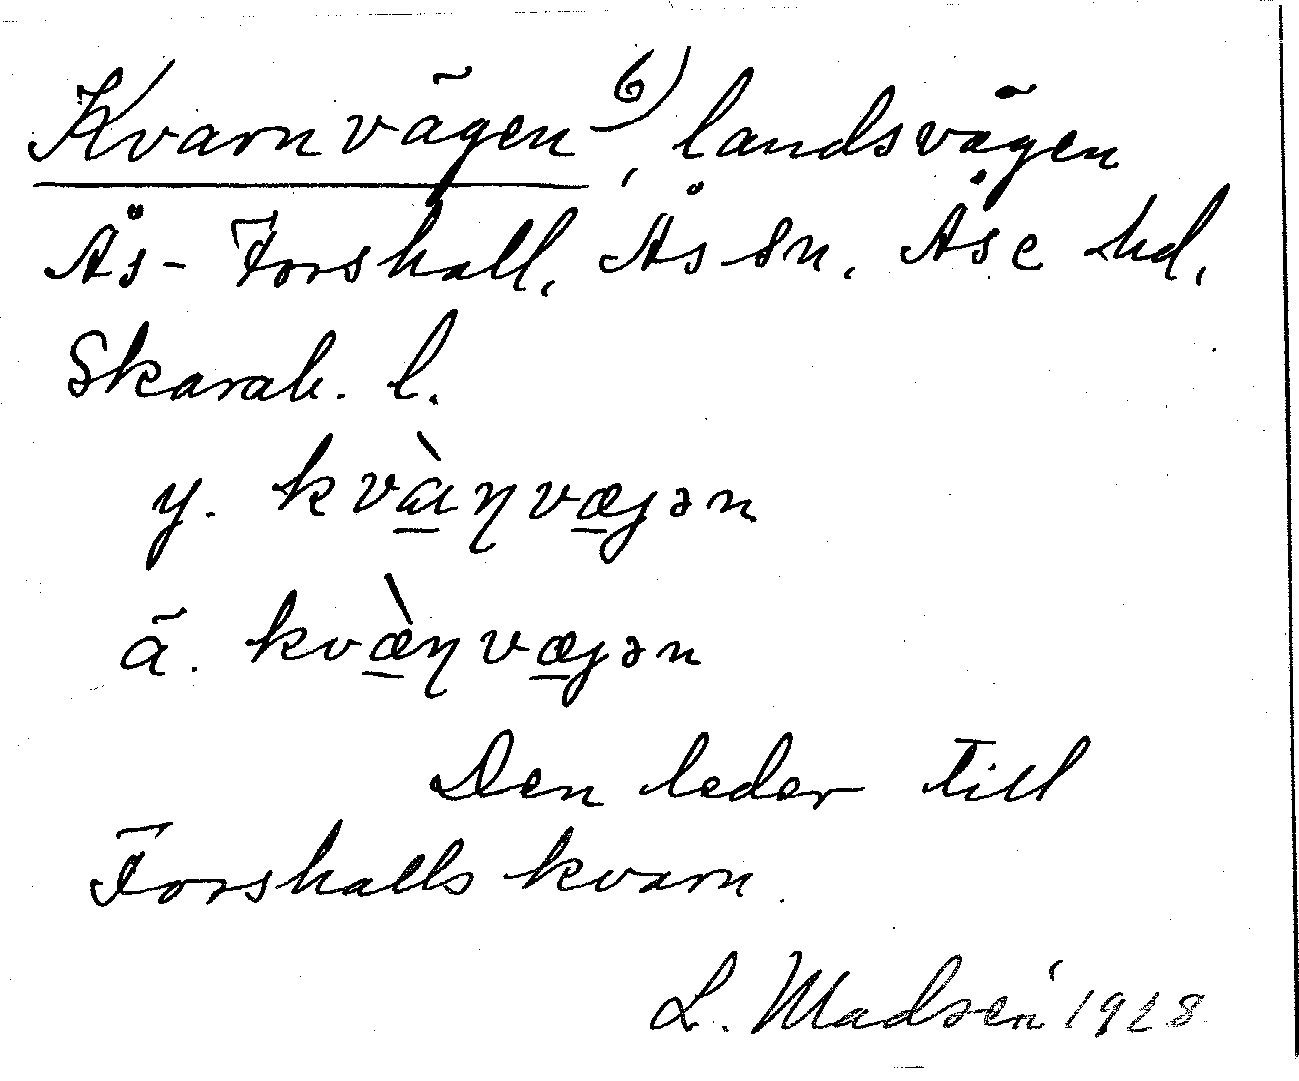 Kvarnvägen 6), landsvägen
Ås - Forshall, Ås sn. Åse hd,
Skarab. l.
y. kvàɳvæjən
ä. kvæ̀ɳvæjən
Den leder till
Forshalls kvarn.
L. Madsén 1928